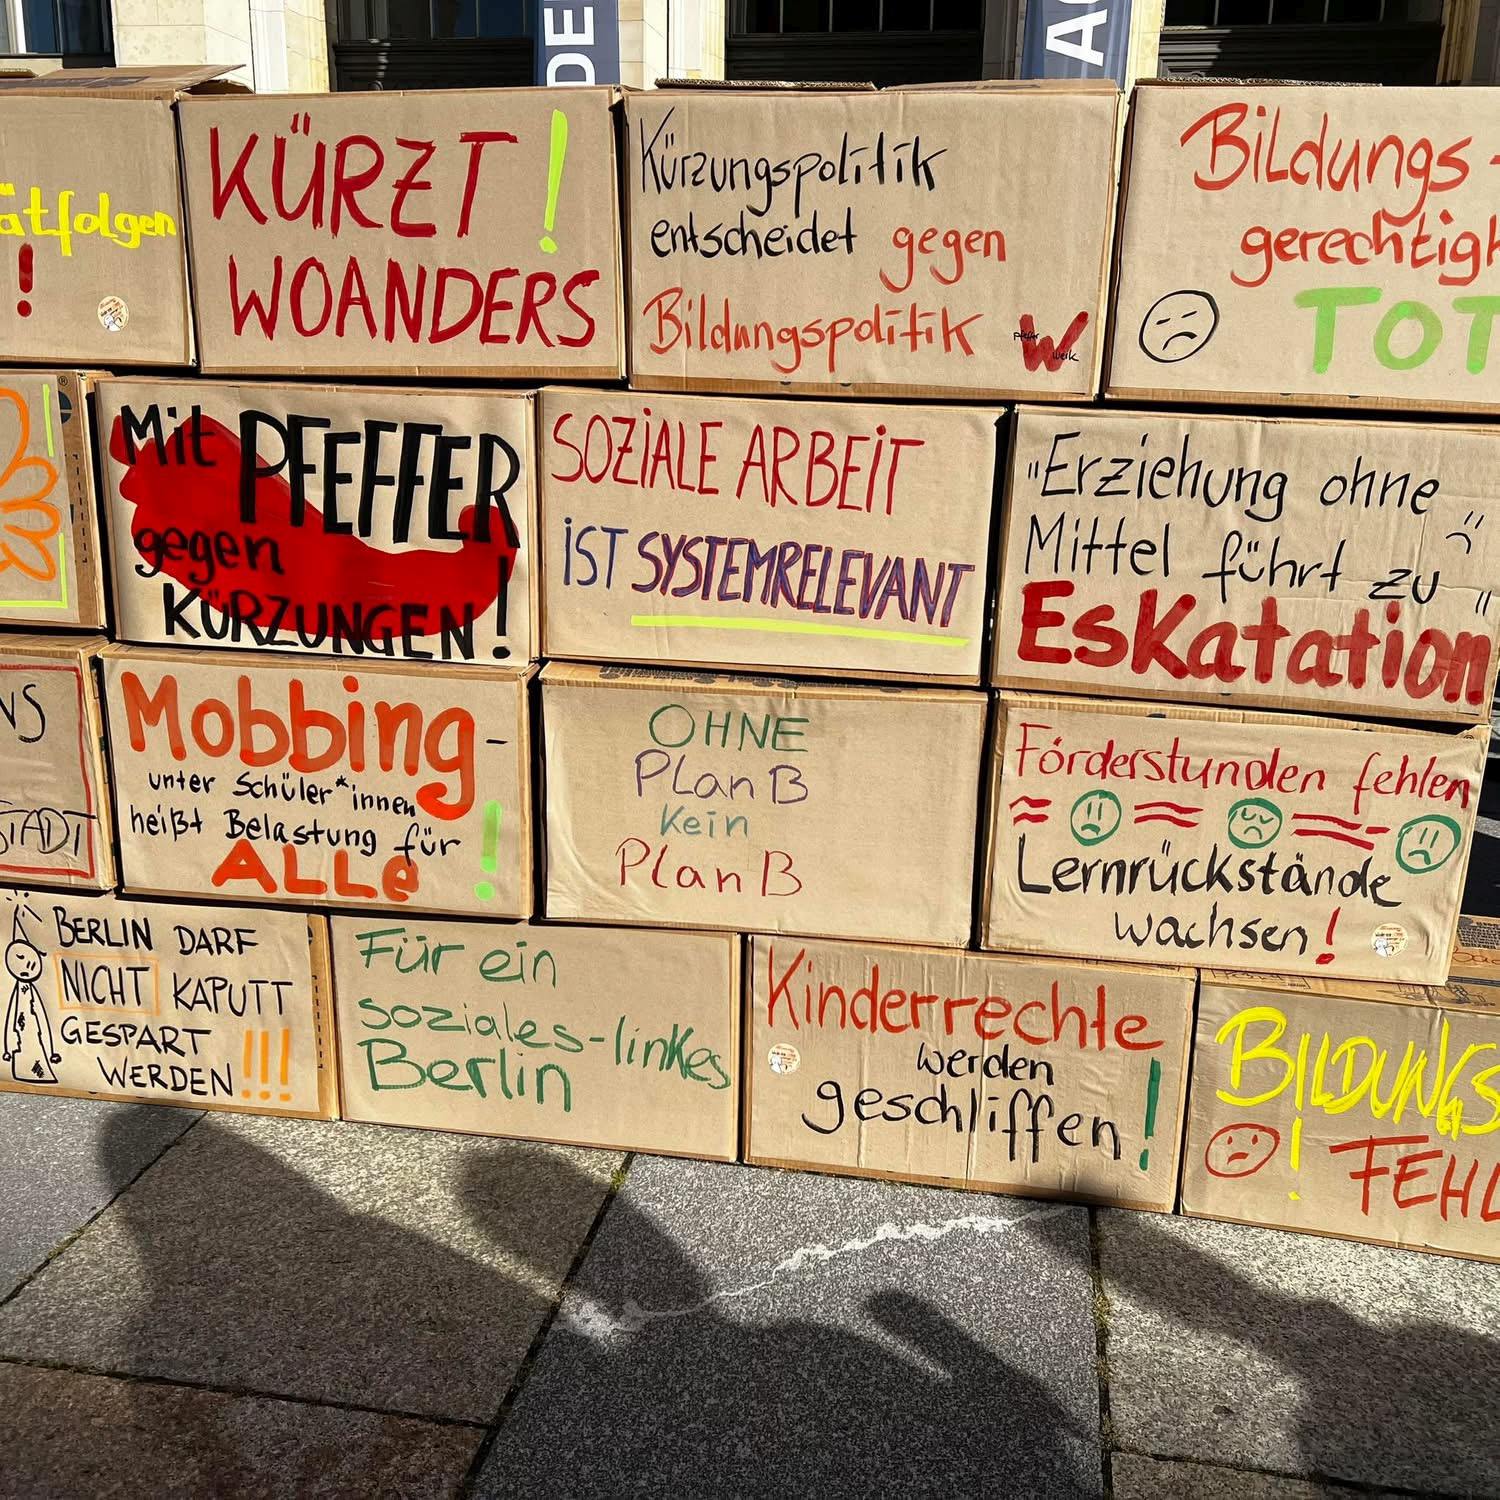 DE
KÜRZT!
WOANDERS
Kürzungspolitik
entscheidet gegen
Bildungspolitik
pfeffer W werk
Bildungs-
gerechtigk
TOT
ätfolgen
!
Mit PFEFFER
gegen
KÜRZUNGEN!
SOZIALE ARBEIT
IST SYSTEMRELEVANT
"Erziehung ohne
Mittel führt zu "
EsKatation
Mobbing-
unter Schüler*innen
heißt Belastung für
ALLe!
OHNE
Plan B
Kein
Plan B
Förderstunden fehlen
Lernrückstände
wachsen!
NS
TADT
BERLIN DARF
NICHT KAPUTT
GESPART
WERDEN!!!
Für ein
soziales-linkes
Berlin
Kinderrechte
werden
geschliffen!
BILDUNGS
! FEHL